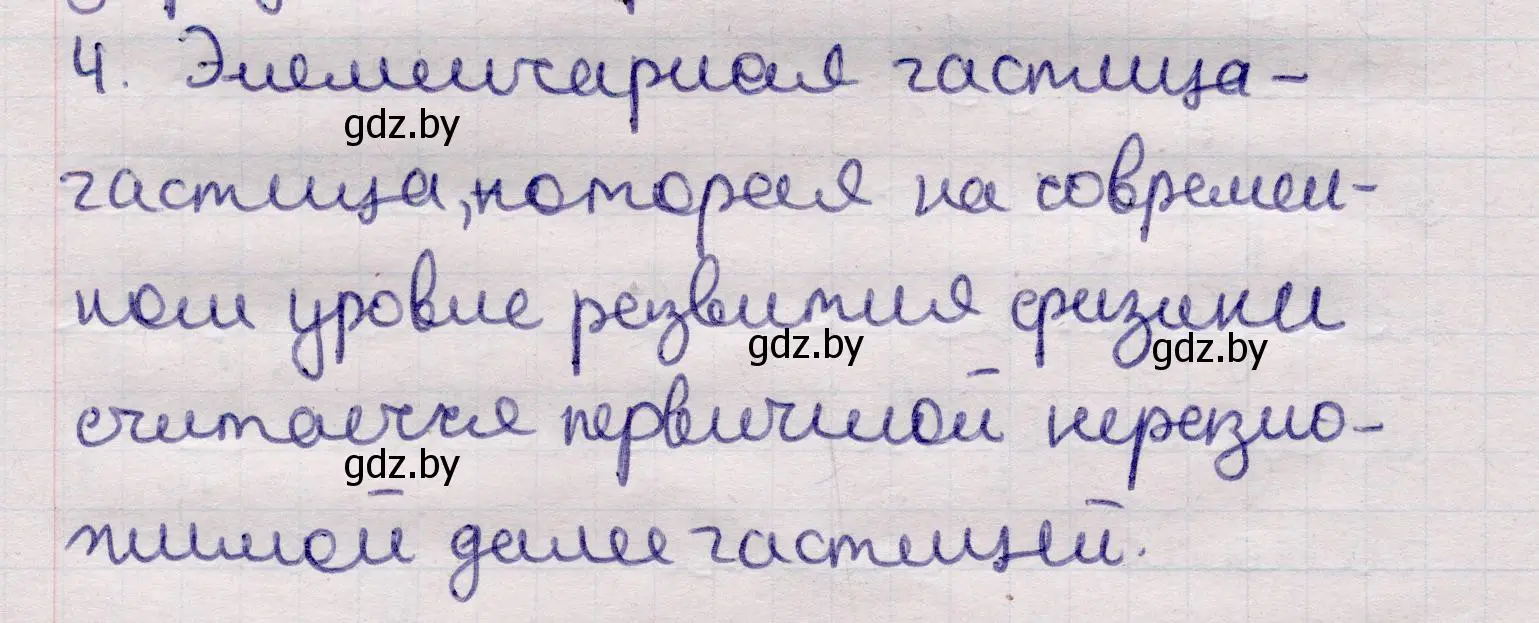 4. Элементарная частица -
gdz.by
частица, которая на современ-
ном уровне развития физики
gdz.by
gdz.by
считается первичной неразло-
gdz.by
жимой далее частицей.